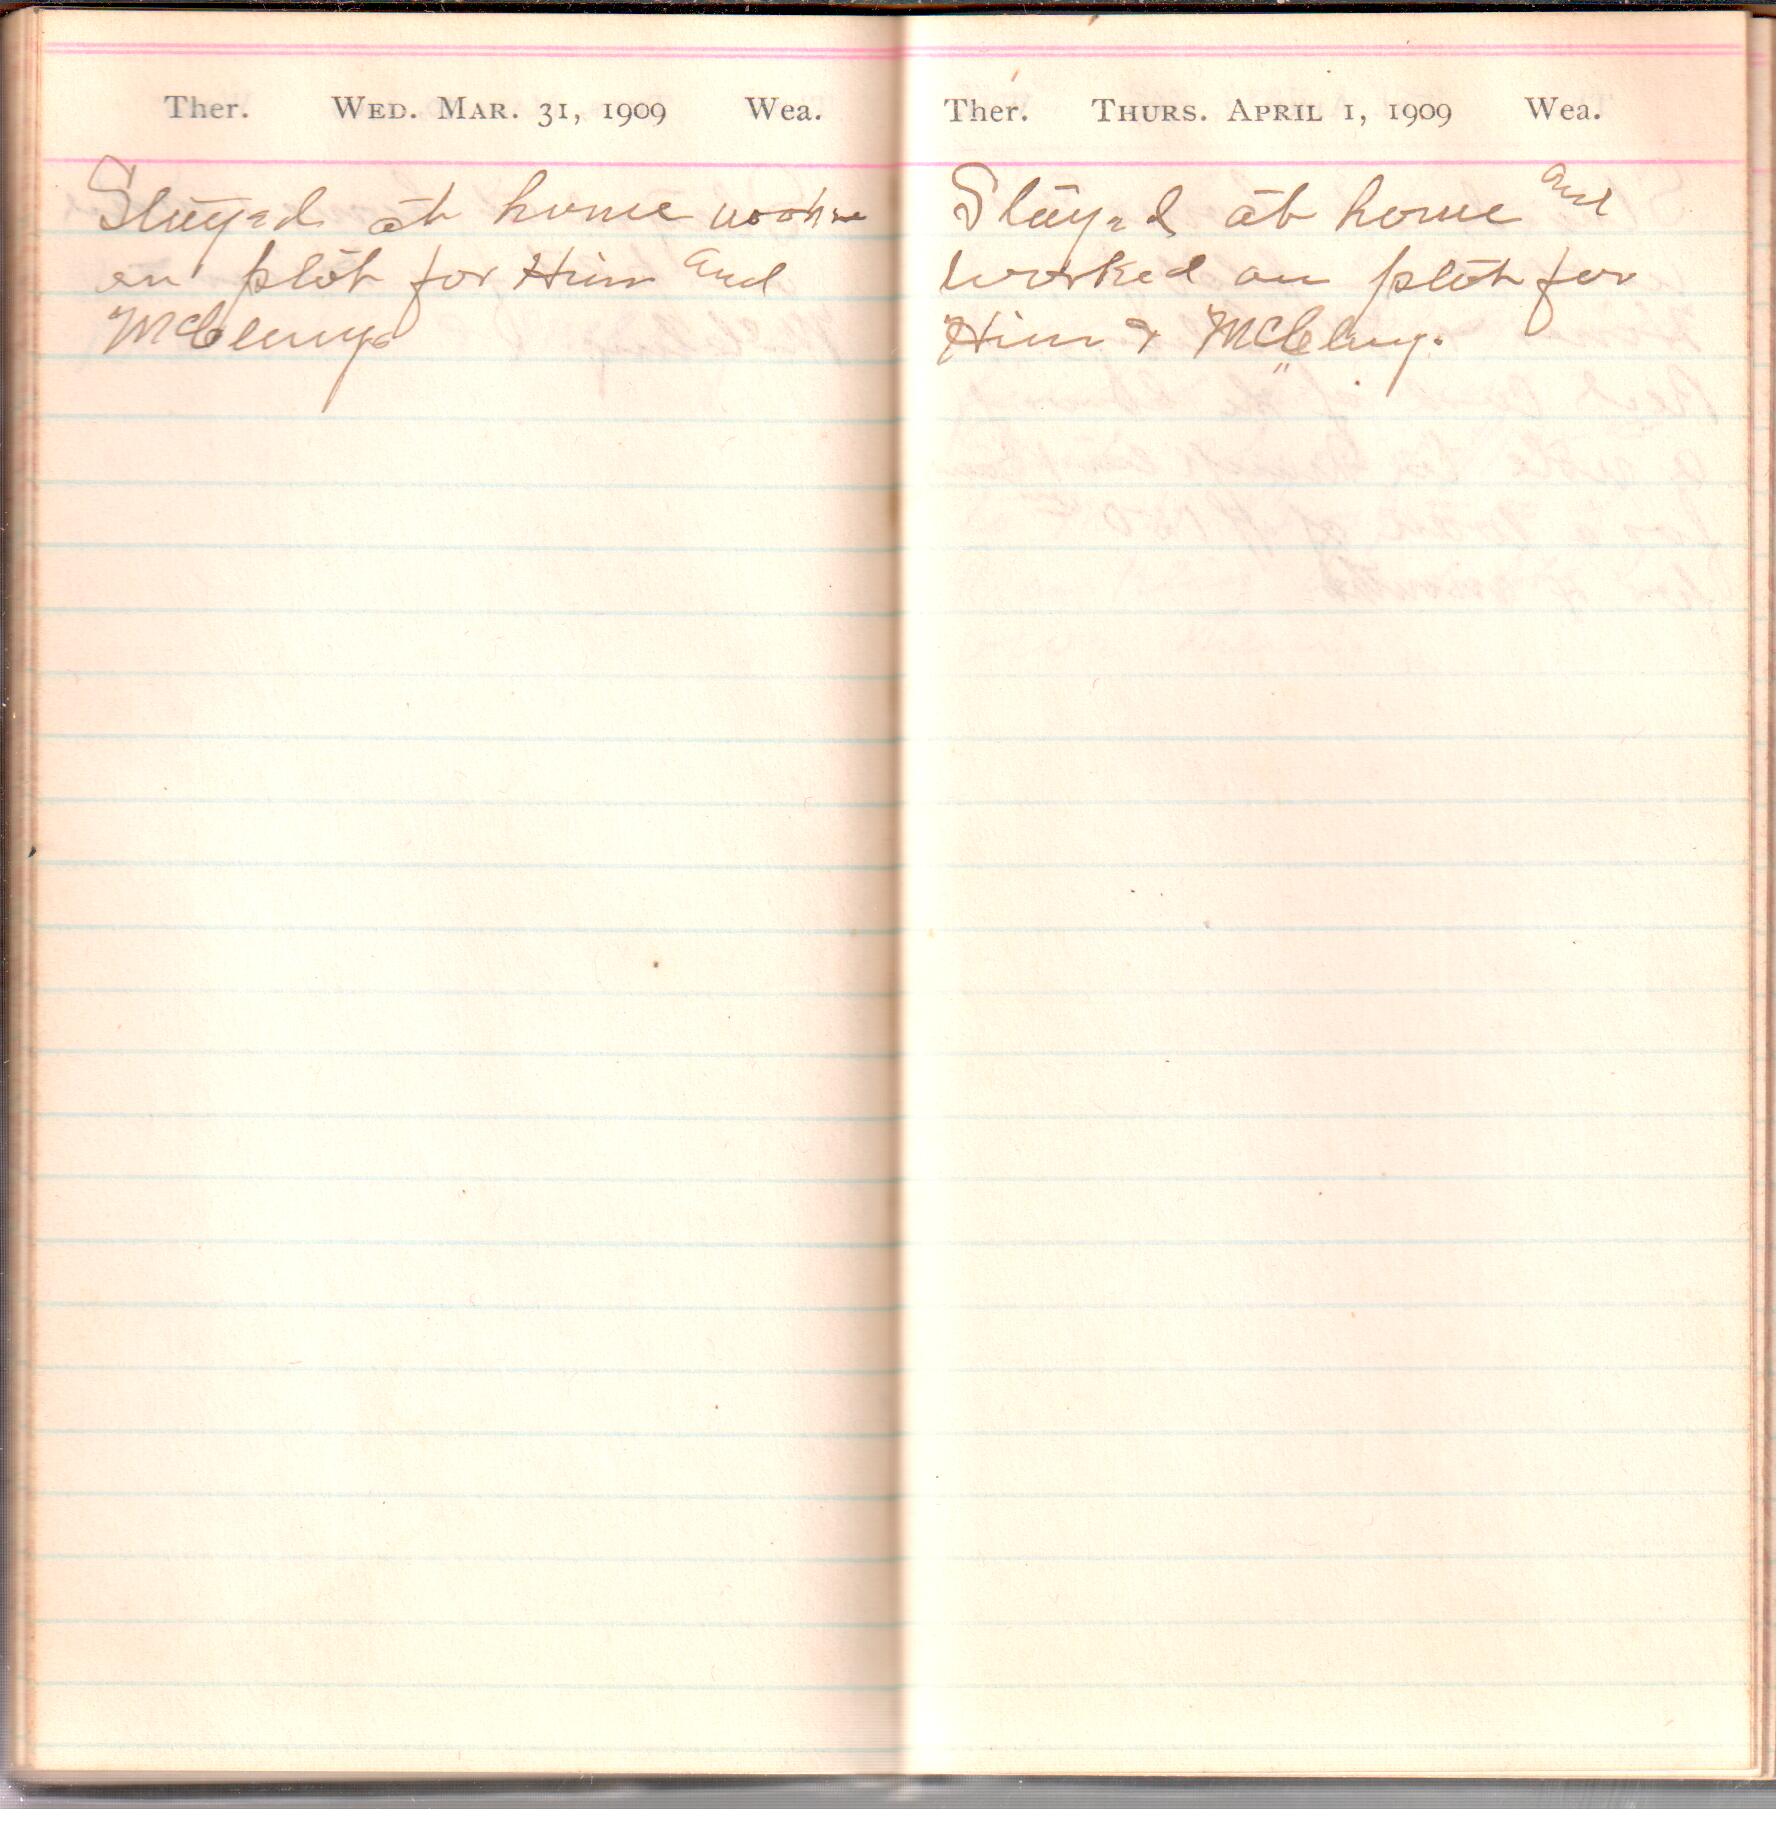 Ther. WED. MAR. 31, 1909 Wea.
Stayed at home
on plot for Him and
Ther. THURS. APRIL 1, 1909 Wea.
Stayed at home and
worked on plot for
Him &